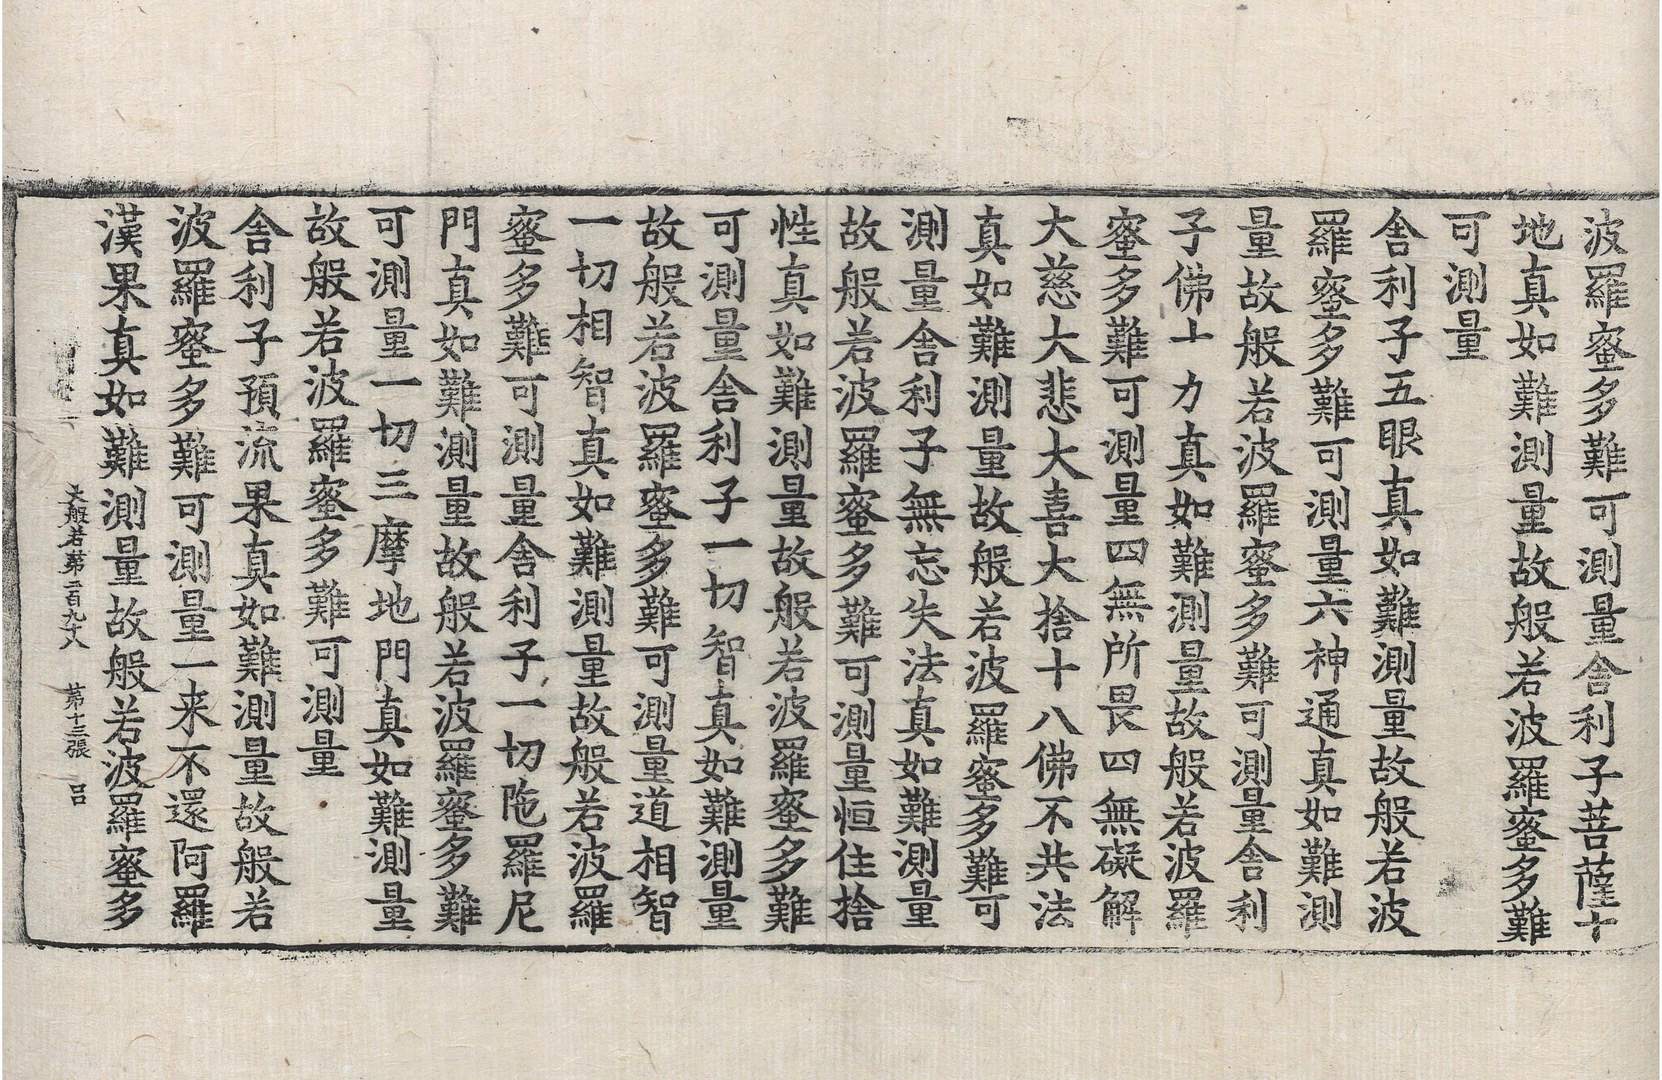 波羅蜜多難可測量舍利子菩薩十
地真如難測量故般若波羅蜜多難
可測量
舍利子五眼真如難測量故般若波
羅蜜多難可測量六神通真如難測
量故般若波羅蜜多難可測量舍利
子佛十力真如難測量故般若波羅
蜜多難可測量四無所畏四無礙解
大慈大悲大喜大捨十八佛不共法
真如難測量故般若波羅蜜多難可
測量舍利子無忘失法真如難測量
故般若波羅蜜多難可測量恒住捨
性真如難測量故般若波羅蜜多難
可測量舍利子一切智真如難測量
故般若波羅蜜多難可測量道相智
一切相智真如難測量故般若波羅
蜜多難可測量舍利子一切陁羅尼
門真如難測量故般若波羅蜜多難
可測量一切三摩地門真如難測量
故般若波羅蜜多難可測量
舍利子預流果真如難測量故般若
波羅蜜多難可測量一来不還阿羅
漢果真如難測量故般若波羅蜜多
大般若第二百九十八 第十三張 吕